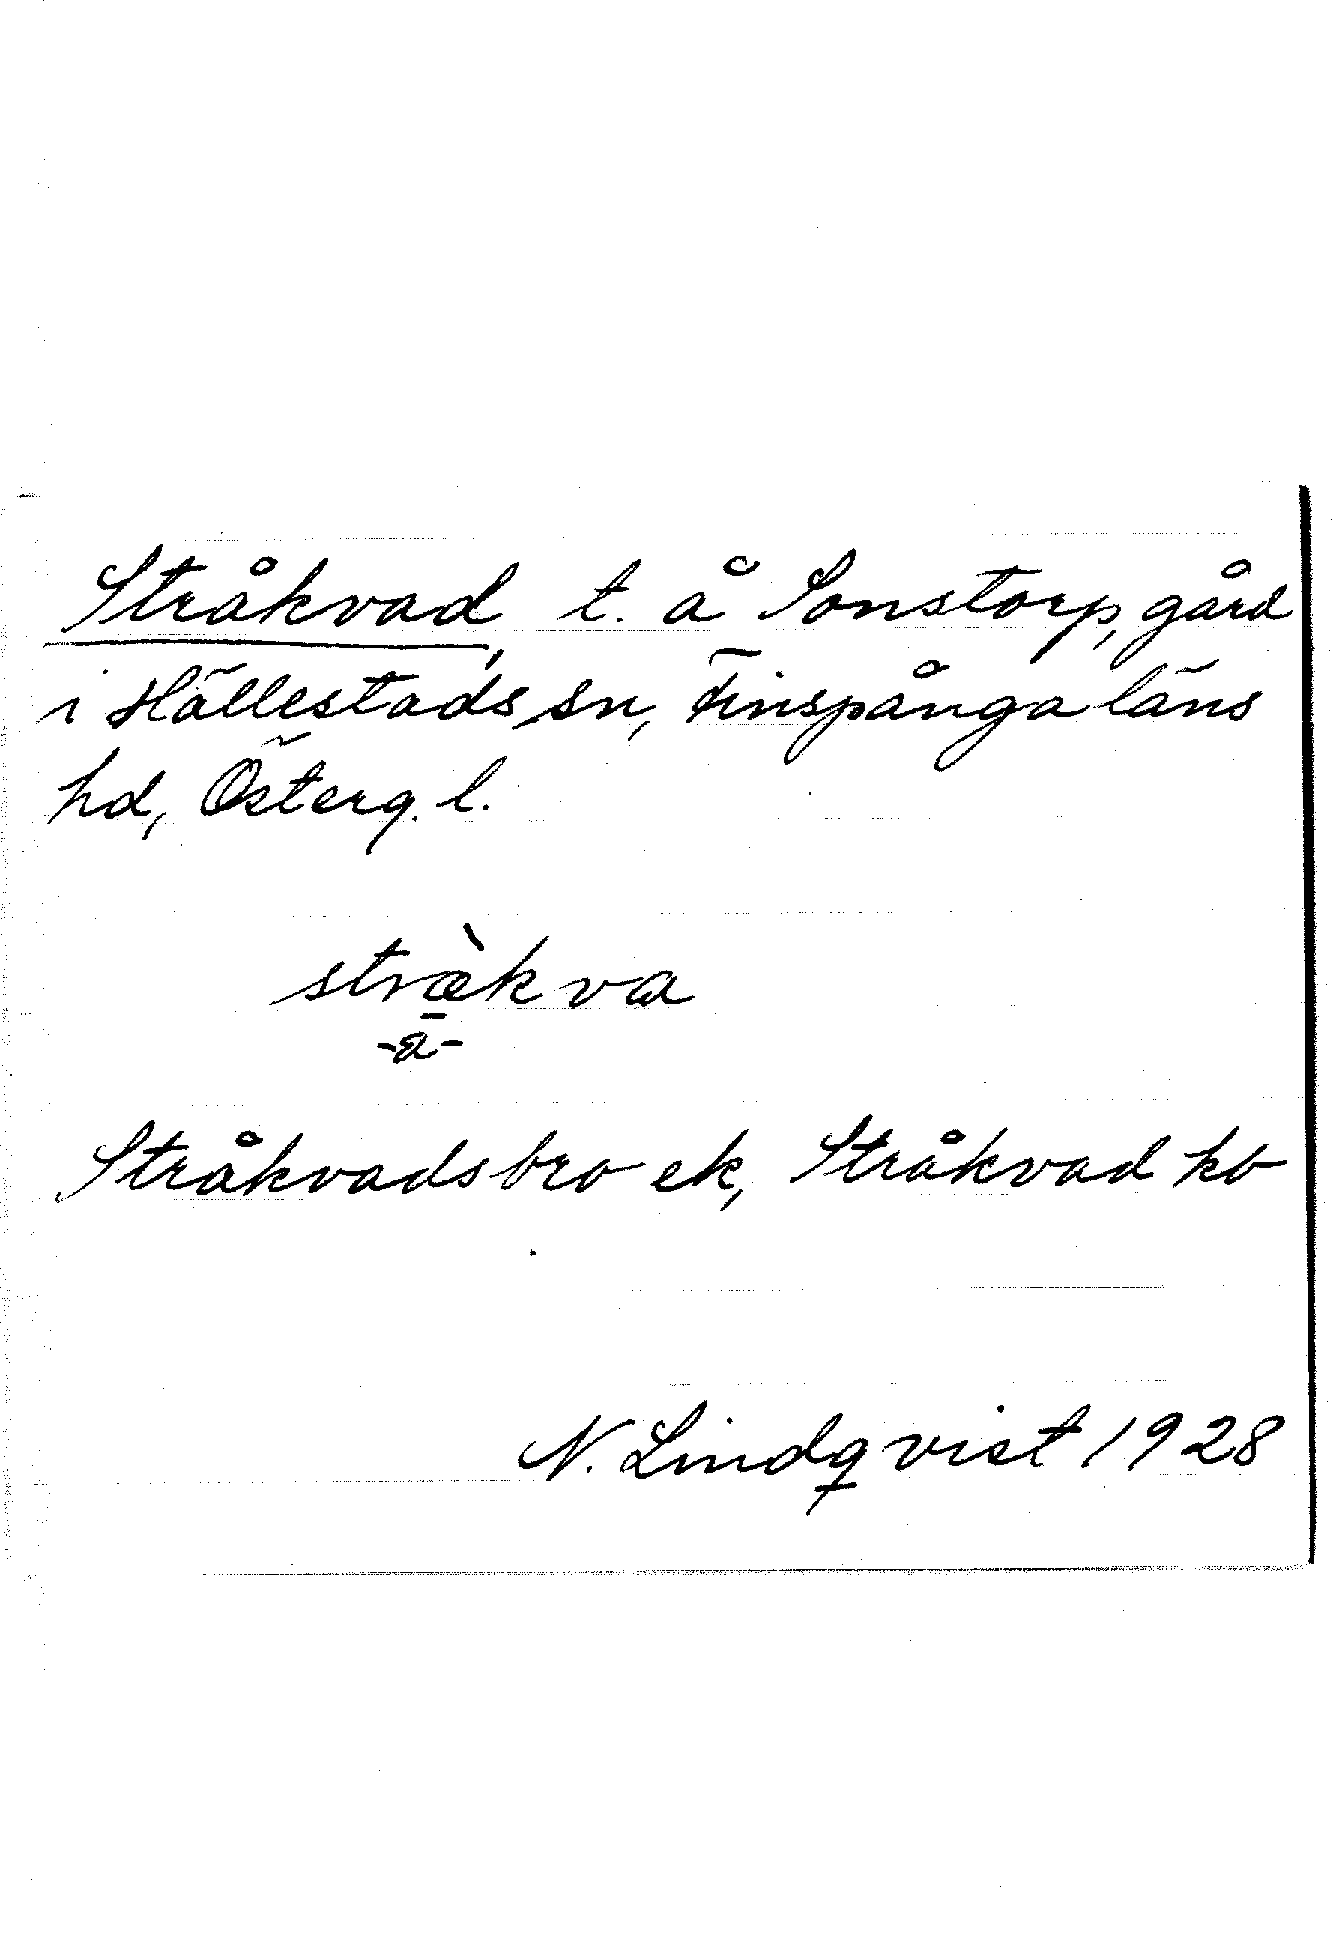 Stråkvad, t. å Sonstorp, gård
i Hällestads sn, Finspånga läns
hd, Österg. l.
stræ̀kva
-a-
Stråkvadsbro ek, Stråkvad kb
N. Lindqvist 1928